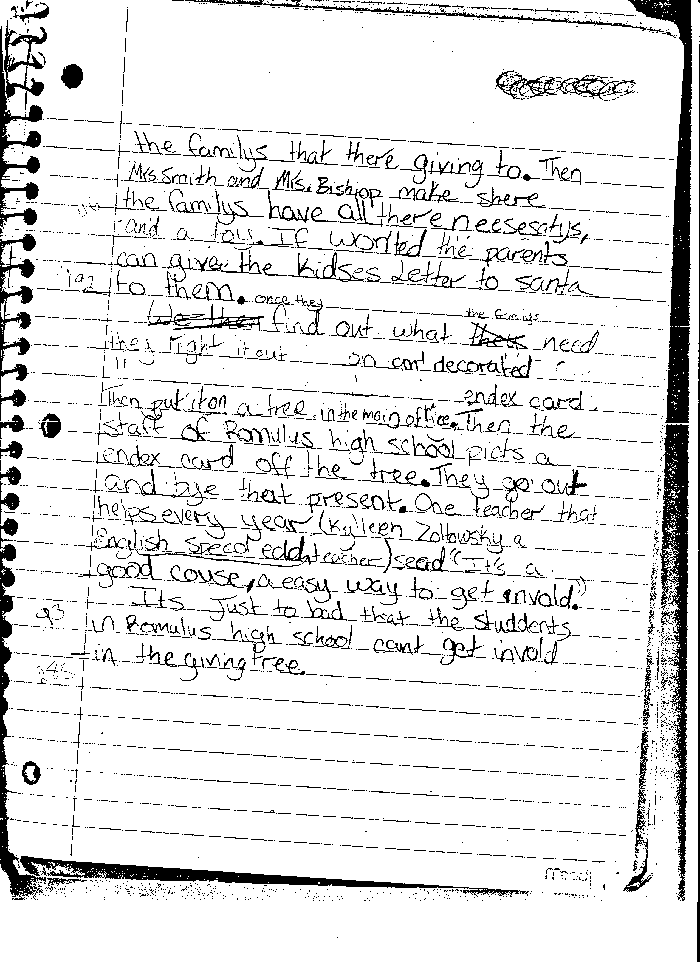 the familys that there giving to. Then
Mrs. Smith and Mrs. Bishop make shere
the familys have all there neesesatys,
and a toy. If wonted the parents
can give the kidses Letter to santa
192
to them. once they the familys
We then find out what thers need
they right it out on an decorated
endex card.
Then put it on a tree in the main office. Then the
staff of Romulus high school picts a
endex card off the tree. They go out
and bye that present. One teacher that
helps every year (Kylleen Zollowsky a
English speed edd. teacher) sead "It's a
good couse, a easy way to get invold."
93
Its just to bad that the studdents
in Romulus high school cant get invold
in the giving tree.
mead